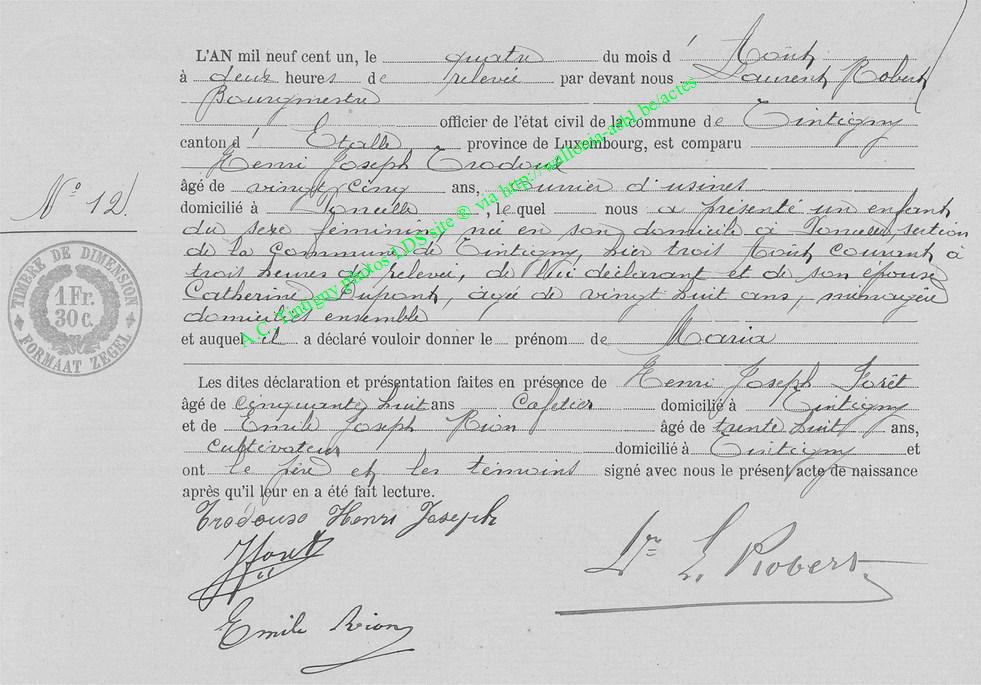 L'AN mil neuf cent un, le quatre du mois d' Août
à deux heures de relevée par devant nous Laurent Robert
Bourgmestre
officier de l'état civil de la commune de Tintigny
canton d' Etalle province de Luxembourg, est comparu
Henri Joseph Trodoux
âgé de vingt cinq ans, ouvrier d'usines
domicilié à Poncelle, le quel nous a présenté un enfant
du sexe féminin, née en son domicile à Poncelle, section
de la commune de Tintigny, hier trois Août courant à
trois heures de relevée, de lui déclarant et de son épouse
Catherine Dupont, âgée de vingt huit ans, ménagère
domiciliés ensemble
et auquel il a déclaré vouloir donner le prénom de Maria
Les dites déclaration et présentation faites en présence de Henri Joseph Forêt
âgé de cinquante huit ans Cafetier domicilié à Tintigny
et de Emile Joseph Rion âgé de trente huit ans,
cultivateur domicilié à Tintigny et
ont le père et les témoins signé avec nous le présent acte de naissance
après qu'il leur en a été fait lecture.
N° 12.
TIMBRE DE DIMENSION
1 Fr.
30 c.
FORMAAT ZEGEL
Henri Joseph
Emile Rion
L. Robert
A.C. Tintigny photos LDS site ® via http://wallonia-asbl.be/actes